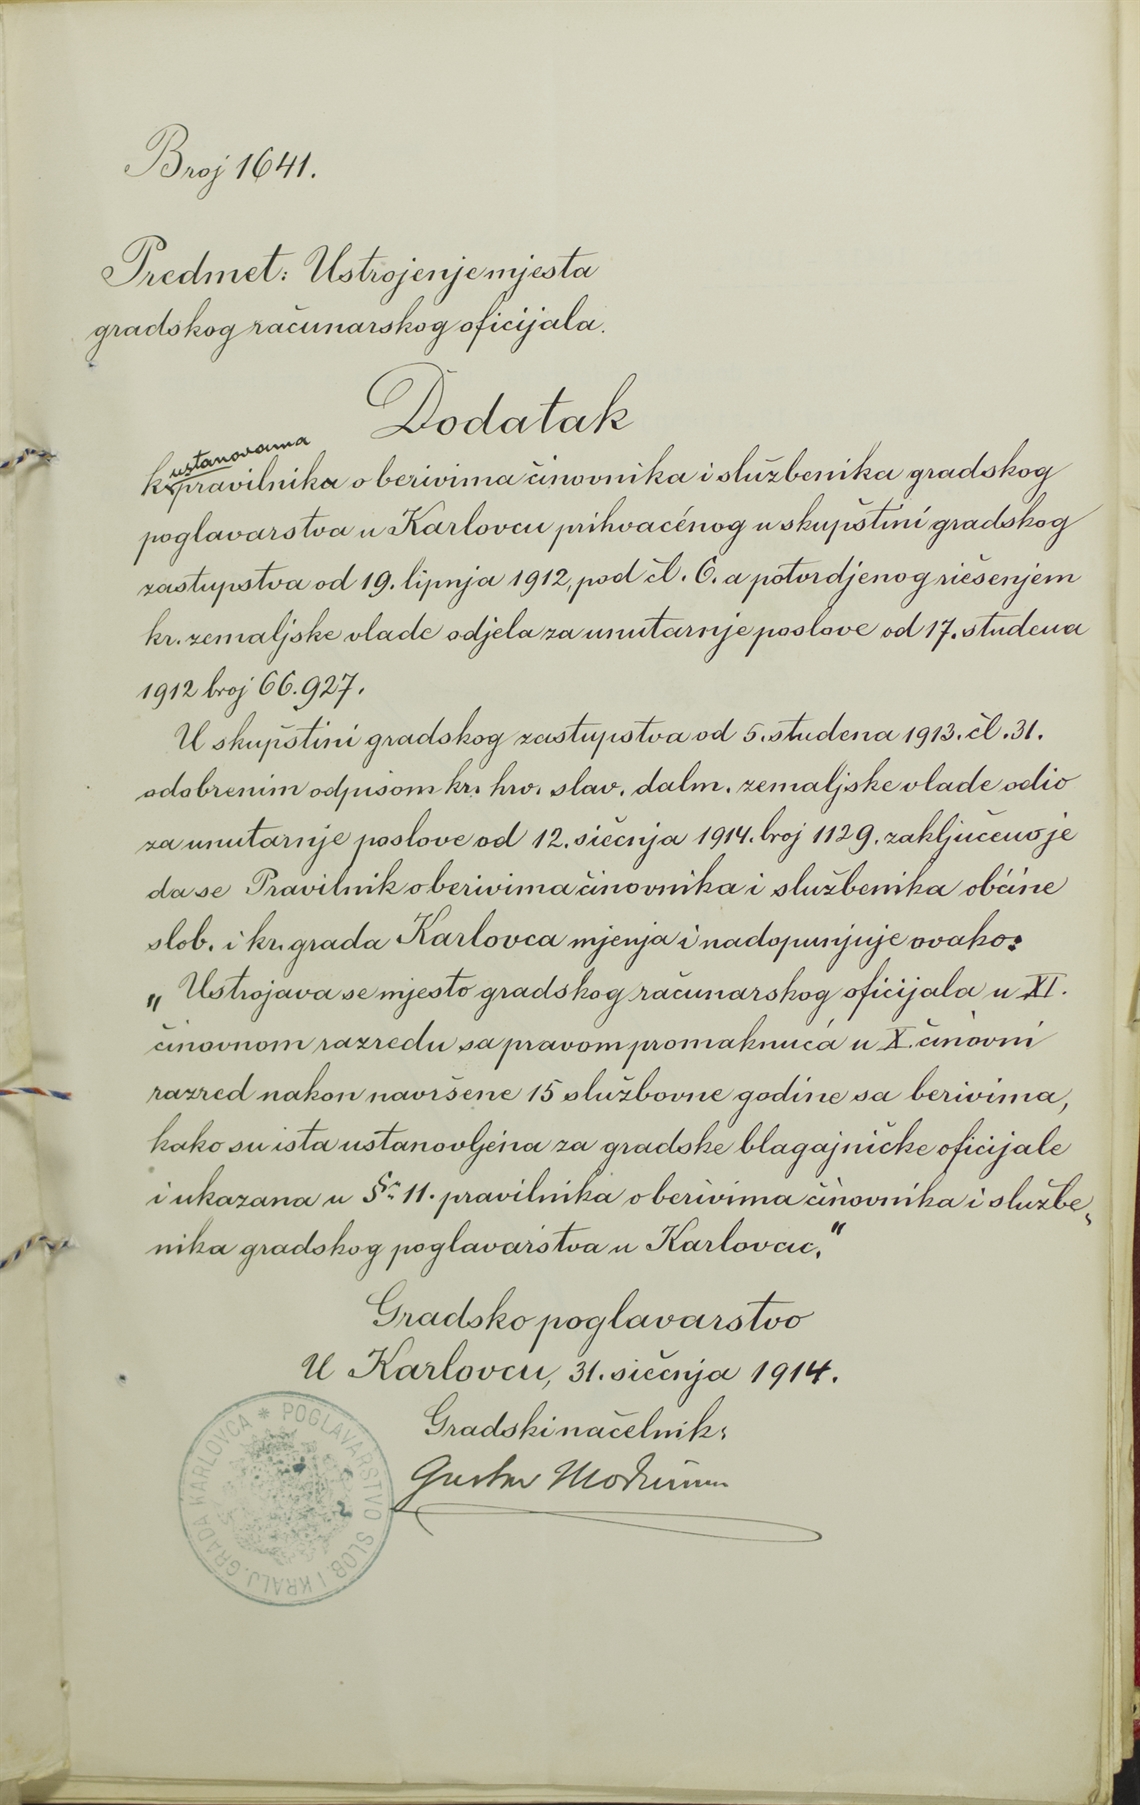 Broj 1641.
Predmet: Ustrojenje mjesta
gradskog računarskog oficijala.
Dodatak
k ustanovama pravilnika o berivima činovnika i službenika gradskog
poglavarstva u Karlovcu prihvaćenog u skupštini gradskog
zastupstva od 19. lipnja 1912, pod čl. 6. a potvrdjenog riešenjem
kr. zemaljske vlade odjela za unutarnje poslove od 17. studena
1912 broj 66.927.
U skupštini gradskog zastupstva od 5. studena 1913. čl. 31.
odobrenim odpisom kr. hrv. slav. dalm. zemaljske vlade odio
za unutarnje poslove od 12. siečnja 1914. broj 1129. zaključeno je
da se Pravilnik o berivima činovnika i službenika obćine
slob. i kr. grada Karlovca mjenja i nadopunjuje ovako:
„Ustrojava se mjesto gradskog računarskog oficijala u XI.
činovnom razredu sa pravom promaknuća u X. činovni
razred nakon navršene 15 službovne godine sa berivima,
kako su ista ustanovljena za gradske blagajničke oficijale
i ukazana u §. 11. pravilnika o berivima činovnika i službe-
nika gradskog poglavarstva u Karlovcu."
Gradsko poglavarstvo
U Karlovcu, 31. siečnja 1914.
Gradski načelnik:
Gustav Modrušan
POGLAVARSTVO SLOB. I KRALJ. GRADA KARLOVCA *